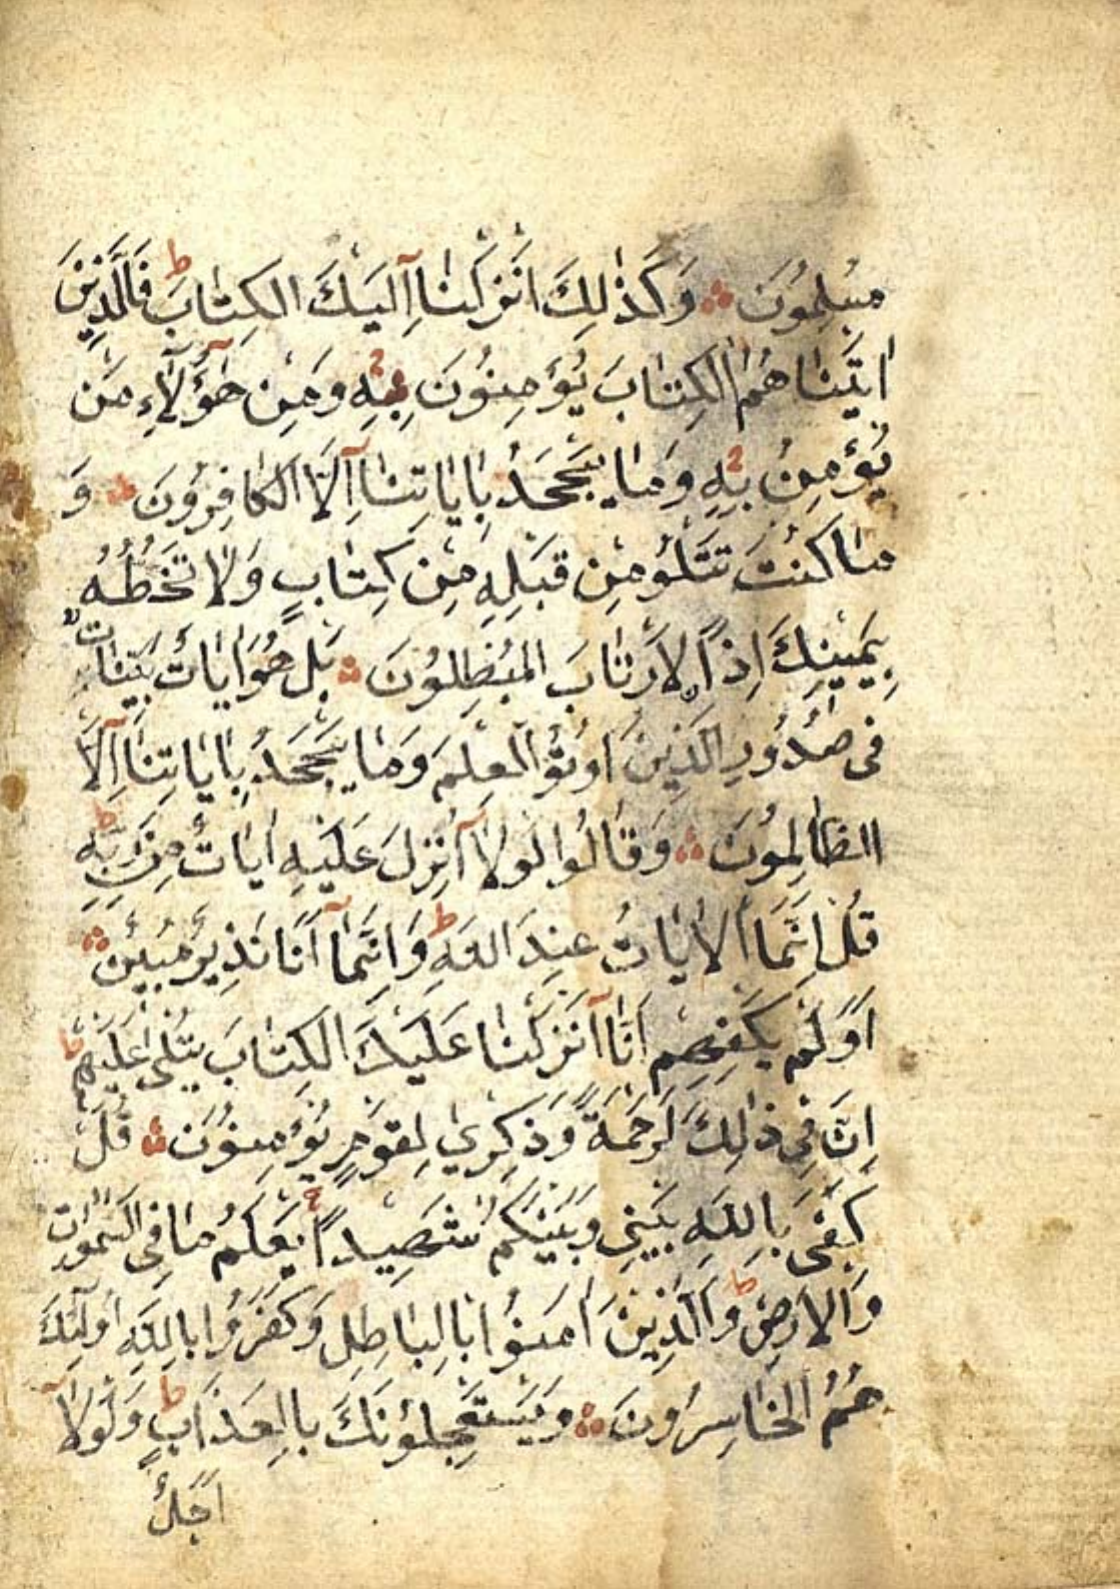 مُسْلِمُونَ ۞ وَكَذٰلِكَ اَنْزَلْنَا اِلَيْكَ الْكِتَابَ ط فَالَّذِينَ
اٰتَيْنَاهُمُ الْكِتَابَ يُؤْمِنُونَ بِهِ وَمِنْ هٰؤُلَاءِ مَنْ
يُؤْمِنُ بِهِ وَمَا يَجْحَدُ بِاٰيَاتِنَا اِلَّا الْكَافِرُونَ ۞ وَ
مَا كُنْتَ تَتْلُو مِنْ قَبْلِهِ مِنْ كِتَابٍ وَلَا تَخُطُّهُ
بِيَمِينِكَ اِذًا لَارْتَابَ الْمُبْطِلُونَ ۞ بَلْ هُوَ اٰيَاتٌ بَيِّنَاتٌ
فِى صُدُورِ الَّذِينَ اُوتُوا الْعِلْمَ وَمَا يَجْحَدُ بِاٰيَاتِنَا اِلَّا
الظَّالِمُونَ ۞ وَقَالُوا لَوْلَا اُنْزِلَ عَلَيْهِ اٰيَاتٌ مِنْ رَبِّهِ ط
قُلْ اِنَّمَا الْاٰيَاتُ عِنْدَ اللّٰهِ ط وَاِنَّمَا اَنَا نَذِيرٌ مُبِينٌ ۞
اَوَلَمْ يَكْفِهِمْ اَنَّا اَنْزَلْنَا عَلَيْكَ الْكِتَابَ يُتْلٰى عَلَيْهِمْ ط
اِنَّ فِى ذٰلِكَ لَرَحْمَةً وَذِكْرٰي لِقَوْمٍ يُؤْمِنُونَ ۞ قُلْ
كَفٰى بِاللّٰهِ بَيْنِى وَبَيْنَكُمْ شَهِيدًا ج يَعْلَمُ مَا فِى السَّمٰوَاتِ
وَالْاَرْضِ ط وَالَّذِينَ اٰمَنُوا بِالْبَاطِلِ وَكَفَرُوا بِاللّٰهِ اُولٰئِكَ
هُمُ الْخَاسِرُونَ ۞ وَيَسْتَعْجِلُونَكَ بِالْعَذَابِ ط وَلَوْلَا
اَجَلٌ